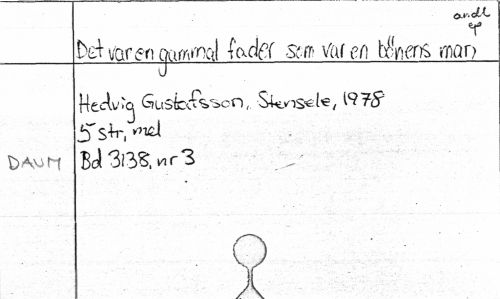 andl
ep
Det var en gammal fader som var en bönens man
Hedvig Gustafsson, Stensele, 1978
5 str, mel
DAUM Bd 3138, nr 3